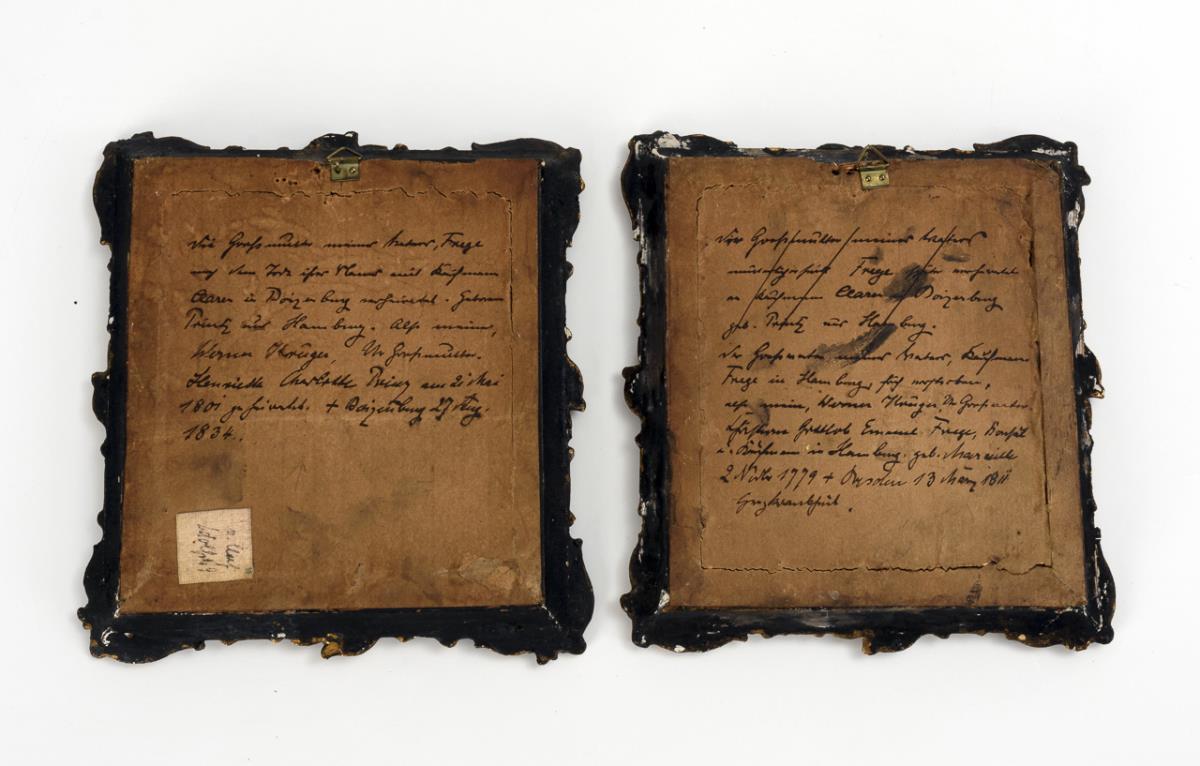 Die Großmutter meines Vaters, Frege
nach dem Tode ihres Mannes mit Kaufmann
Claren in Boizenburg verheiratet. Geborene
Printz aus Hamburg. Also meine,
Werner Krüger, Ur Großmutter.
Henriette Charlotte Prinz am 2 Mai
1801 geheiratet. + Boizenburg 27 Aug.
1834.
Die Großmutter meines Vaters
Frege später verheiratet
an Kaufmann Claren in Boizenburg
geb. Printz aus Hamburg.
Der Großvater meines Vaters, Kaufmann
Frege in Hamburg, früh verstorben,
also mein, Werner Krüger, Ur Großvater
Christian Gottlob Emanuel Frege, Konsul
u. Kaufmann in Hamburg. geb.
2 1779 + Dresden 13 März 1811